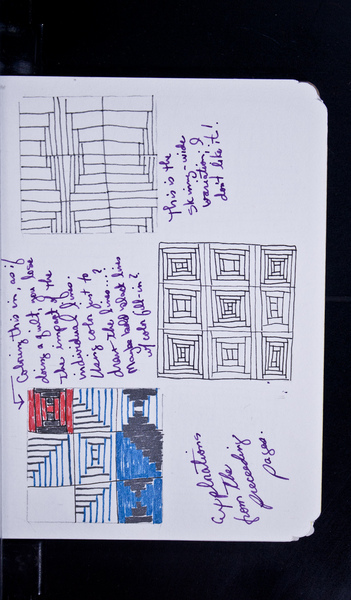 Coloring this in, as if
doing a quilt, you lose
the impact of the
individual lines.
Using color just to
draw the lines...?
Maybe bold black lines
w/ color fill-in?
This is the
skinny-wide
variation; I
don't like it!
explorations
from the
preceeding
pages.